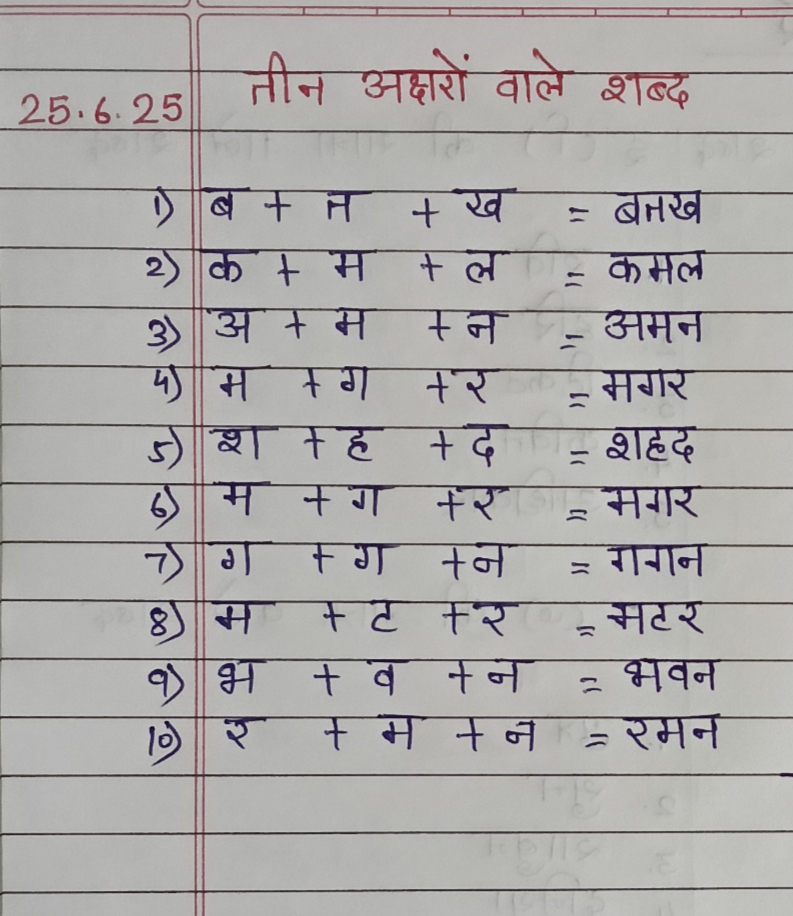 तीन अक्षरों वाले शब्द
25.6.25
1) ब + त + ख = बतख
2) क + म + ल = कमल
3) अ + म + न = अमन
4) म + ग + र = मगर
5) श + ह + द = शहद
6) म + ग + र = मगर
7) ग + ग + न = गगन
8) म + ट + र = मटर
9) भ + व + न = भवन
10) र + म + न = रमन